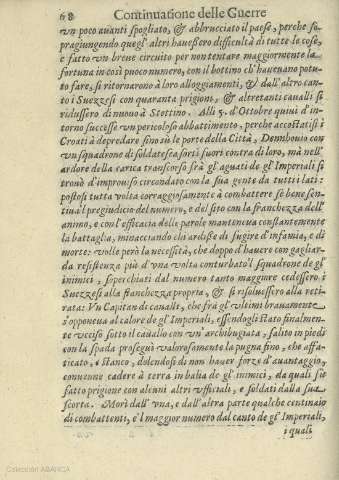 68 Continuatione delle Guerre
vn poco auanti spogliato, & abbrucciato il paese, perche so-
pragiungendo quegl'altri hauessero difficultà di tutte le cose,
e fatto vn breue circuito per non tentare maggiormente la
fortuna in così puoco numero, con il bottino ch'haueuano potu-
to fare, si ritornarono à loro alloggiamenti, & dall'altro can-
to i Suezzesi con quaranta prigioni, & altretanti caualli si
ridussero di nuouo à Stottino. Alli 5. d'Ottobre quiui d'in-
torno successe vn pericoloso abbattimento, perche accostatisi i
Croati à depredare sino sù le porte della Città, Demhouio con
vn squadrone di soldatesca sortì fuori contra di loro, mà nell'
ardore della carica transcorso frà gl'aguati de gl'Imperiali si
trouò d'improuiso circondato con la sua gente da tutti i lati:
postosi tutta volta corraggiosamente à combattere sè bene sen-
tiua'l pregiudicio del numero, e del sito con la franchezza dell'
animo, e con l'efficacia delle parole manteneua constantemente
la battaglia, minacciando chi ardisse di fugire d'infamia, e di
morte: volle però la necessità, che doppo d'hauere con gagliar-
da resistenza più d'vna volta conturbato'l squadrone de gl'
inimici, soperchiati dal numero tanto maggiore cedessero i
Suezzesi alla franchezza propria, & si risoluessero alla reti-
rata: Vn Capitan di caualli, che frà gl'vltimi brauamente
s'opponeua al calore de gl'Imperiali, essendogli stato finalmen-
te vcciso sotto il cauallo con vn'archibugiata, salito in piedi
con la spada proseguì valorosamente la pugna fino, che affa-
ticato, e stanco, dolendosi di non hauer forze d'auantaggio,
conuenne cadere à terra in balia de gl'inimici, da quali sè
fatto prigione con alcuni altri vfficiali, e soldati dalla sua
scorta. Morì dall'vna, e dall'altra parte qualche centinaio
di combattenti, e'l maggior numero dal canto de gl'Imperiali,
i quali
Colección ABANCA